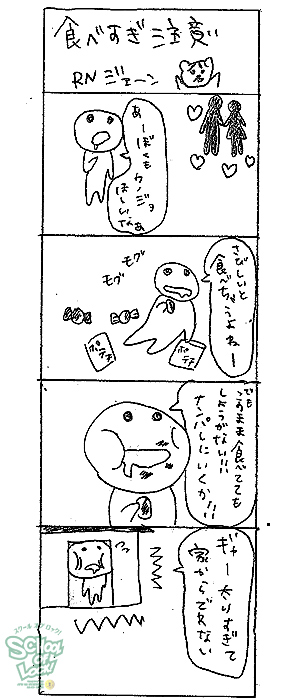 食べすぎ注意
RN ジェーン
あーぼくも
カノジョ
ほしいなぁ
さびしいと
食べちゃうよねー
モグ
モグ
ポテチ
ポテチ
でも
このまま食べてても
しょうがない!!
ナンパしにいくか!!
ギャー太りすぎて
家からでれない
スクール オブ ロック!
SCHOOL OF LOCK!